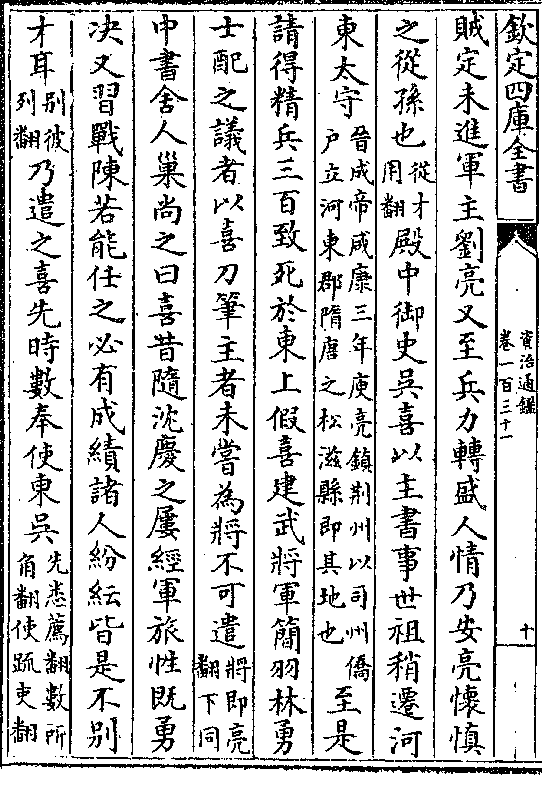 欽定四庫全書
資治通鑑
卷一百三十一
十
賊定未進軍主劉亮又至兵力轉盛人情乃安亮懷慎
之從孫也從才用翻殿中御史吳喜以主書事世祖稍遷河
東太守晉成帝咸康三年庾亮鎮荆州以司州僑戶立河東郡隋唐之松滋縣即其地也至是
請得精兵三百致死於東上假喜建武將軍簡羽林勇
士配之議者以喜刀筆主者未嘗為將不可遣將即亮翻下同
中書舍人巢尚之曰喜昔隨沈慶之屢經軍旅性既勇
决又習戰陳若能任之必有成績諸人紛紜皆是不别
才耳别彼列翻乃遣之喜先時數奉使東吳先悉薦翻數所角翻使疏吏翻